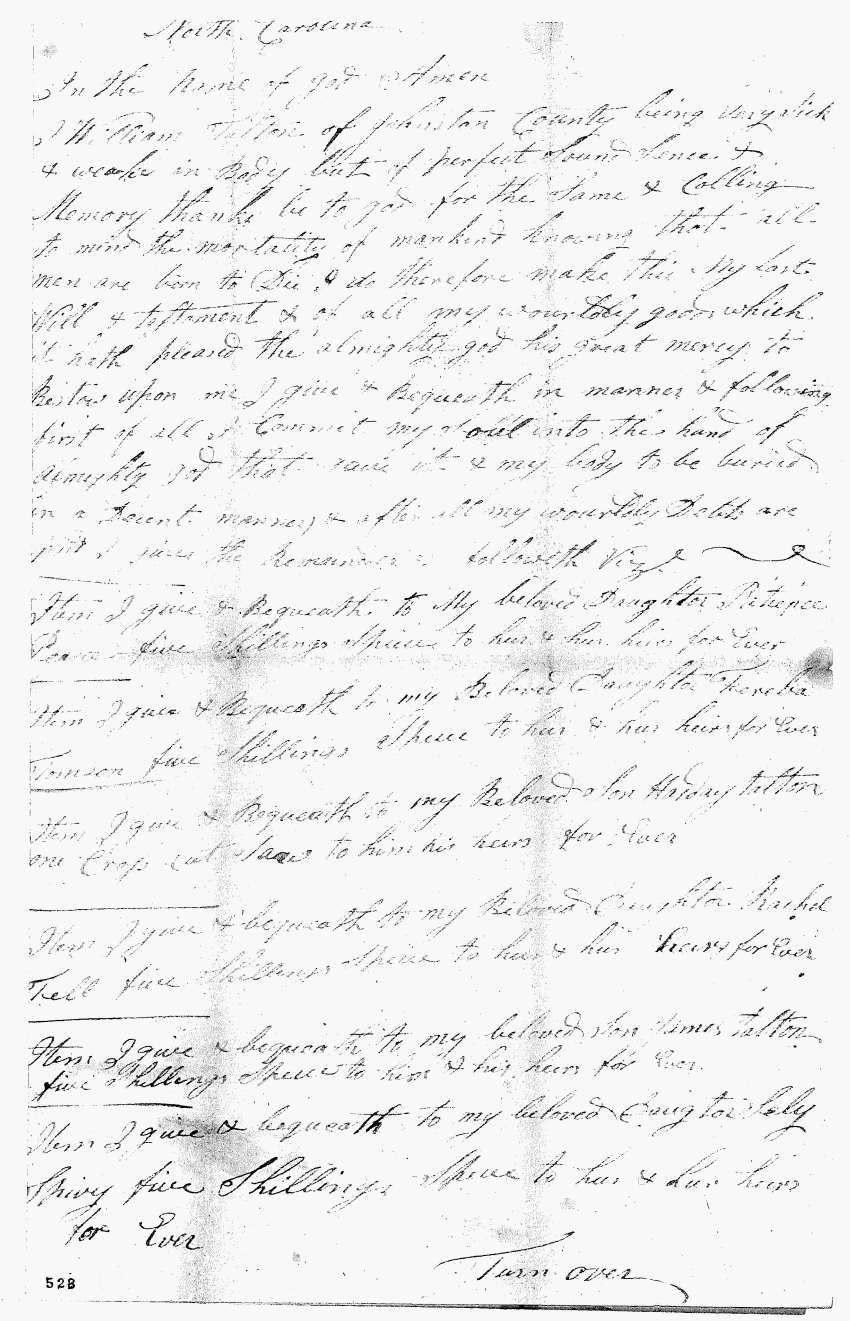 North Carolina
In the Name of god Amen
I William Talton of Johnston County being very Sick
& weake in Body but of perfect Sound Sence &
Memory thanks be to god for the Same & Colling
to mind the mortality of mankind knowing that all
men are born to Die I do therefore make this My Last
Will & testament & of all my wourldly goods which
it hath pleased the almighty god his great mercy to
Bestow upon me I give & Bequeath in manner & following
first of all I Commit my Soull into the hand of
almighty god that gave it & my body to be buried
in a Decent manner & after all my wourldly Debts are
I gives the Remainder followeth Viz
Item I give & Bequeath to My beloved Daughter
Pearce five Shillings Speice to hur & hur heirs for Ever
Item I give & Bequeath to my Beloved Daughter Fereba
Tomson five Shillings Speice to hur & hur heirs for Ever
Item I give & Bequeath to my Beloved Son Harday talton
one Cross cut Saw to him his heirs for Ever
Item I give & bequeath to my Beloved Daughter Rachel
Fell five Shillings Speice to hur & hur heirs for Ever
Item I give & bequeath to my beloved Son James talton
five Shillings Speice to him & his heirs for Ever
Item I give & bequeath to my beloved Daugtor
Spivy five Shillings Speice to hur & hur heirs
for Ever
Turn over
528